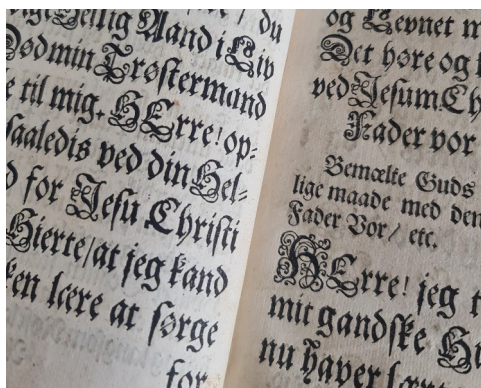 Hellig Aand i Liv
Død min Trøstermand
til mig. HErre! op-
saaledis ved din Hel-
for Jesu Christi
Hierte/ at jeg kand
lære at sørge
for
og Levnet
Det høre og
ved Jesum Ch
Fader vor
Bemælte Guds
lige maade med den
Fader Vor/ etc.
HErre! jeg
mit gandske
nu haver